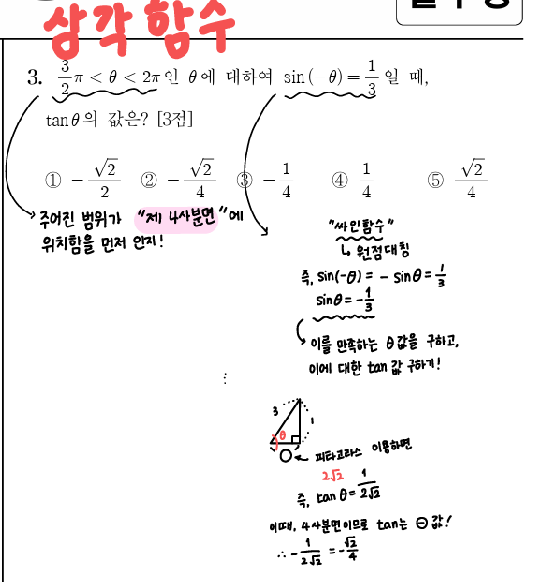 삼각함수
3. 3/2 π < θ < 2π인 θ에 대하여 sin( θ) = 1/3 일 때,
tanθ의 값은? [3점]
① - √2/2 ② - √2/4 ③ - 1/4 ④ 1/4 ⑤ √2/4
주어진 범위가 "제 4사분면"에
위치함을 먼저 인지!
"싸인함수"
↳ 원점대칭
즉, sin(-θ) = - sinθ = 1/3
sinθ = - 1/3
이를 만족하는 θ값을 구하고,
이에 대한 tan값 구하기!
⋮
3
1
θ
피타고라스 이용하면
2√2
즉, tanθ = 1/2√2
이때, 4사분면이므로 tan는 ⊖값!
∴ - 1/2√2 = - √2/4